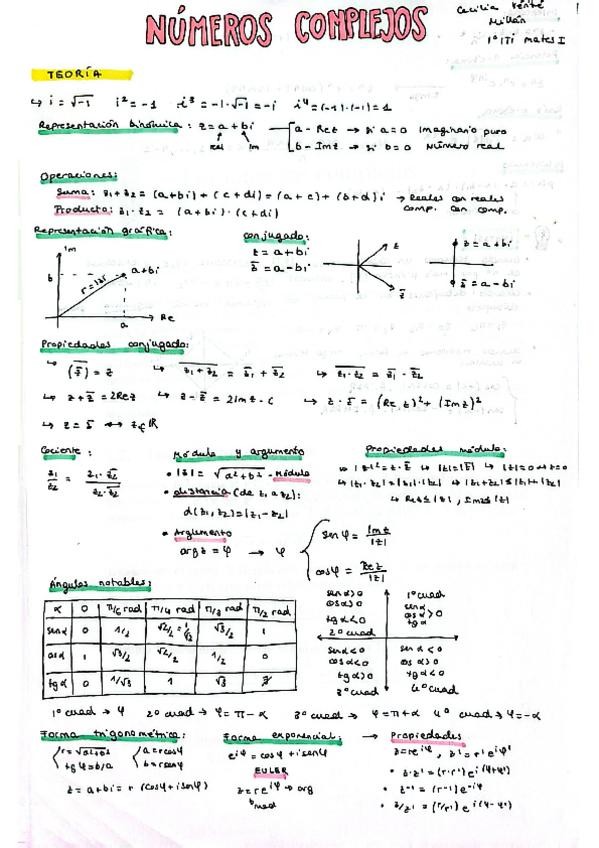 NÚMEROS COMPLEJOS
Cecilia
Millán
1º ITI mates I
TEORÍA
↳ i = √-1  i² = -1  i³ = -1·√-1 = -i  i⁴ = (-1)·(-1) = 1
Representación binómica: z = a + bi
real Im
a - Re z → si a=0 Imaginario puro
b - Im z → si b=0 Número real
Operaciones:
Suma: z₁+z₂ = (a+bi) + (c+di) = (a+c) + (b+d)i → Reales con reales
comp. con comp.
Producto: z₁·z₂ = (a+bi)·(c+di)
Representación gráfica:
Im
b
a+bi
r=|z|
a
Re
conjugado:
z = a+bi
z̅ = a-bi
z
z̅
z = a+bi
z̅ = a-bi
Propiedades conjugado:
↳ (z̅)‾ = z  ↳ (z₁+z₂)‾ = z̅₁ + z̅₂  ↳ (z₁·z₂)‾ = z̅₁·z̅₂
↳ z+z̅ = 2Re z  ↳ z-z̅ = 2Im z·i  ↳ z·z̅ = (Re z)² + (Im z)²
↳ z = z̅ ↔ z∈ℝ
Cociente:
z₁/z₂ = z₁·z̅₂/z₂·z̅₂
Módulo y argumento
• |z| = √a²+b² - Módulo
• distancia (de z₁ a z₂):
d(z₁,z₂) = |z₁-z₂|
• Argumento
arg z = φ → φ
sen φ = Im z/|z|
cos φ = Re z/|z|
Propiedades módulo:
↳ |z|² = z·z̅  ↳ |z|=|z̅|  ↳ |z|=0 ↔ z=0
↳ |z₁·z₂| = |z₁|·|z₂|  ↳ |z₁+z₂| ≤ |z₁|+|z₂|
↳ Re z ≤ |z|, Im z ≤ |z|
Ángulos notables:
α 0 π/6 rad π/4 rad π/3 rad π/2 rad
sen α 0 1/2 √2/2 = 1/√2 √3/2 1
cos α 1 √3/2 √2/2 1/2 0
tg α 0 1/√3 1 √3 ∄
sen α>0
cos α<0
tg α<0
2º cuad
1º cuad
sen α
cos α >0
tg α
sen α<0
cos α<0
tg α>0
3º cuad
sen α<0
cos α>0
tg α<0
4º cuad
1º cuad → φ  2º cuad → φ = π-α  3º cuad → φ = π+α  4º cuad → φ = -α
Forma trigonométrica:
r = √a²+b²
tg φ = b/a
a = r cos φ
b = r sen φ
z = a+bi = r (cos φ + i sen φ)
Forma exponencial:
e^iφ = cos φ + i sen φ
EULER
z = r e^iφ → arg
mod
→ Propiedades
z = re^iφ, z' = r'e^iφ'
• z·z' = (r·r') e^i(φ+φ')
• z⁻¹ = (r⁻¹) e^-iφ
• z/z' = (r/r') e^i(φ-φ')